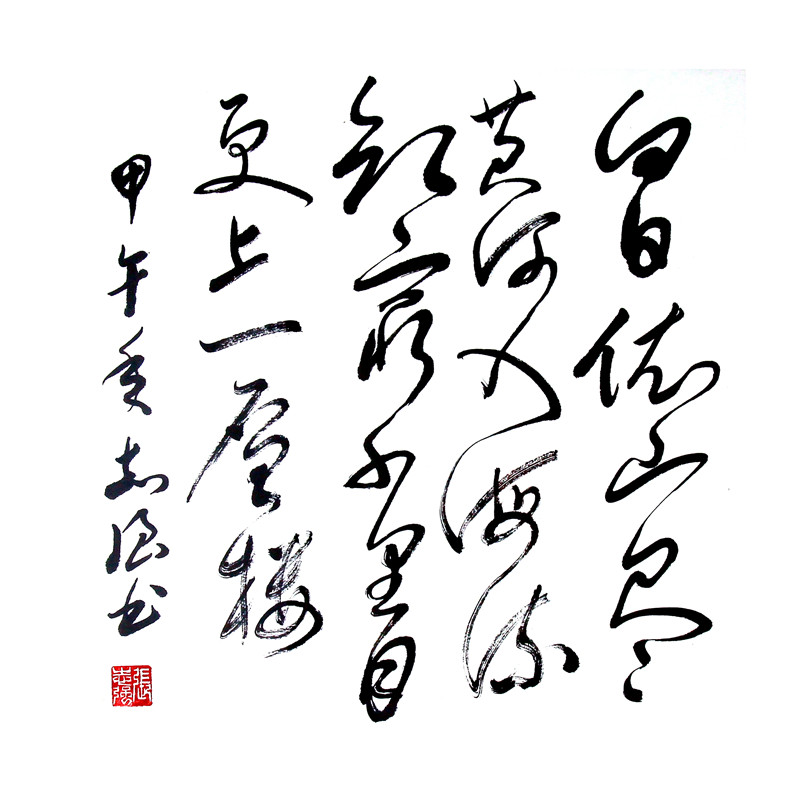 白日依山尽
黄河入海流
欲穷千里目
更上一层楼
甲午夏志强书
张志强